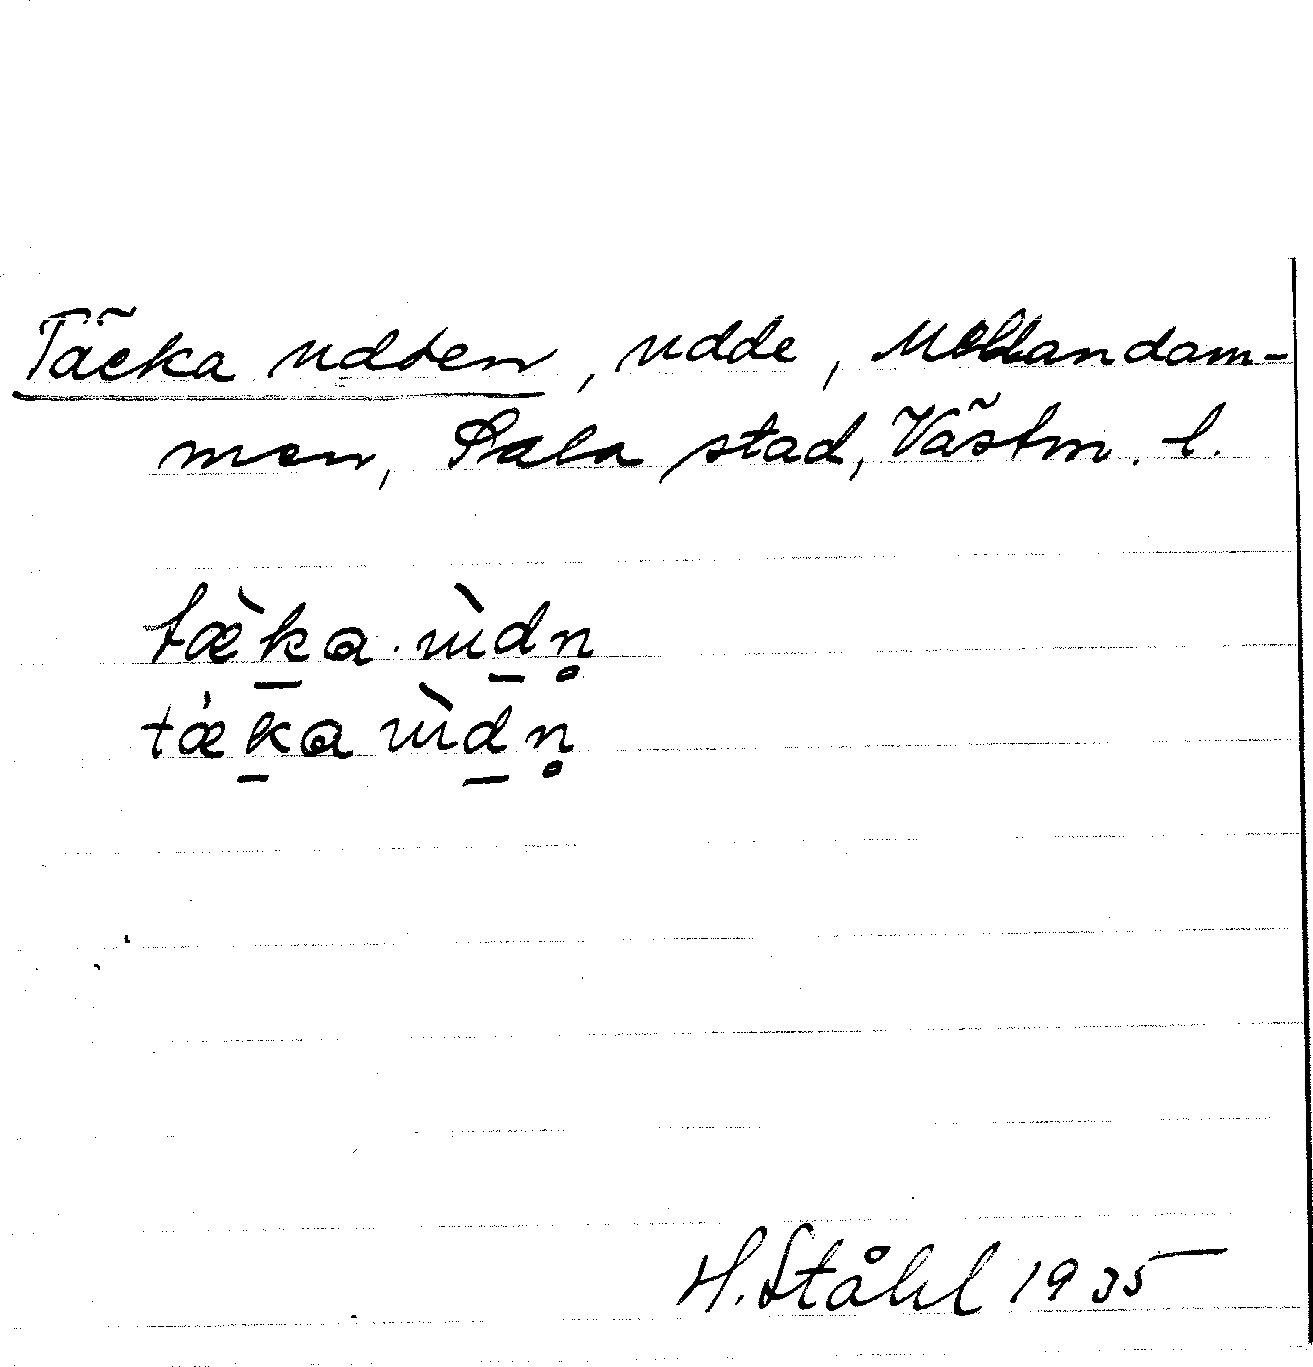 Täcka udden, udde, Mellandam-
men, Sala stad, Västm. l.
tæ̀ḵa . ùḏṇ
tǽḵa ùḏṇ
H. Ståhl 1935